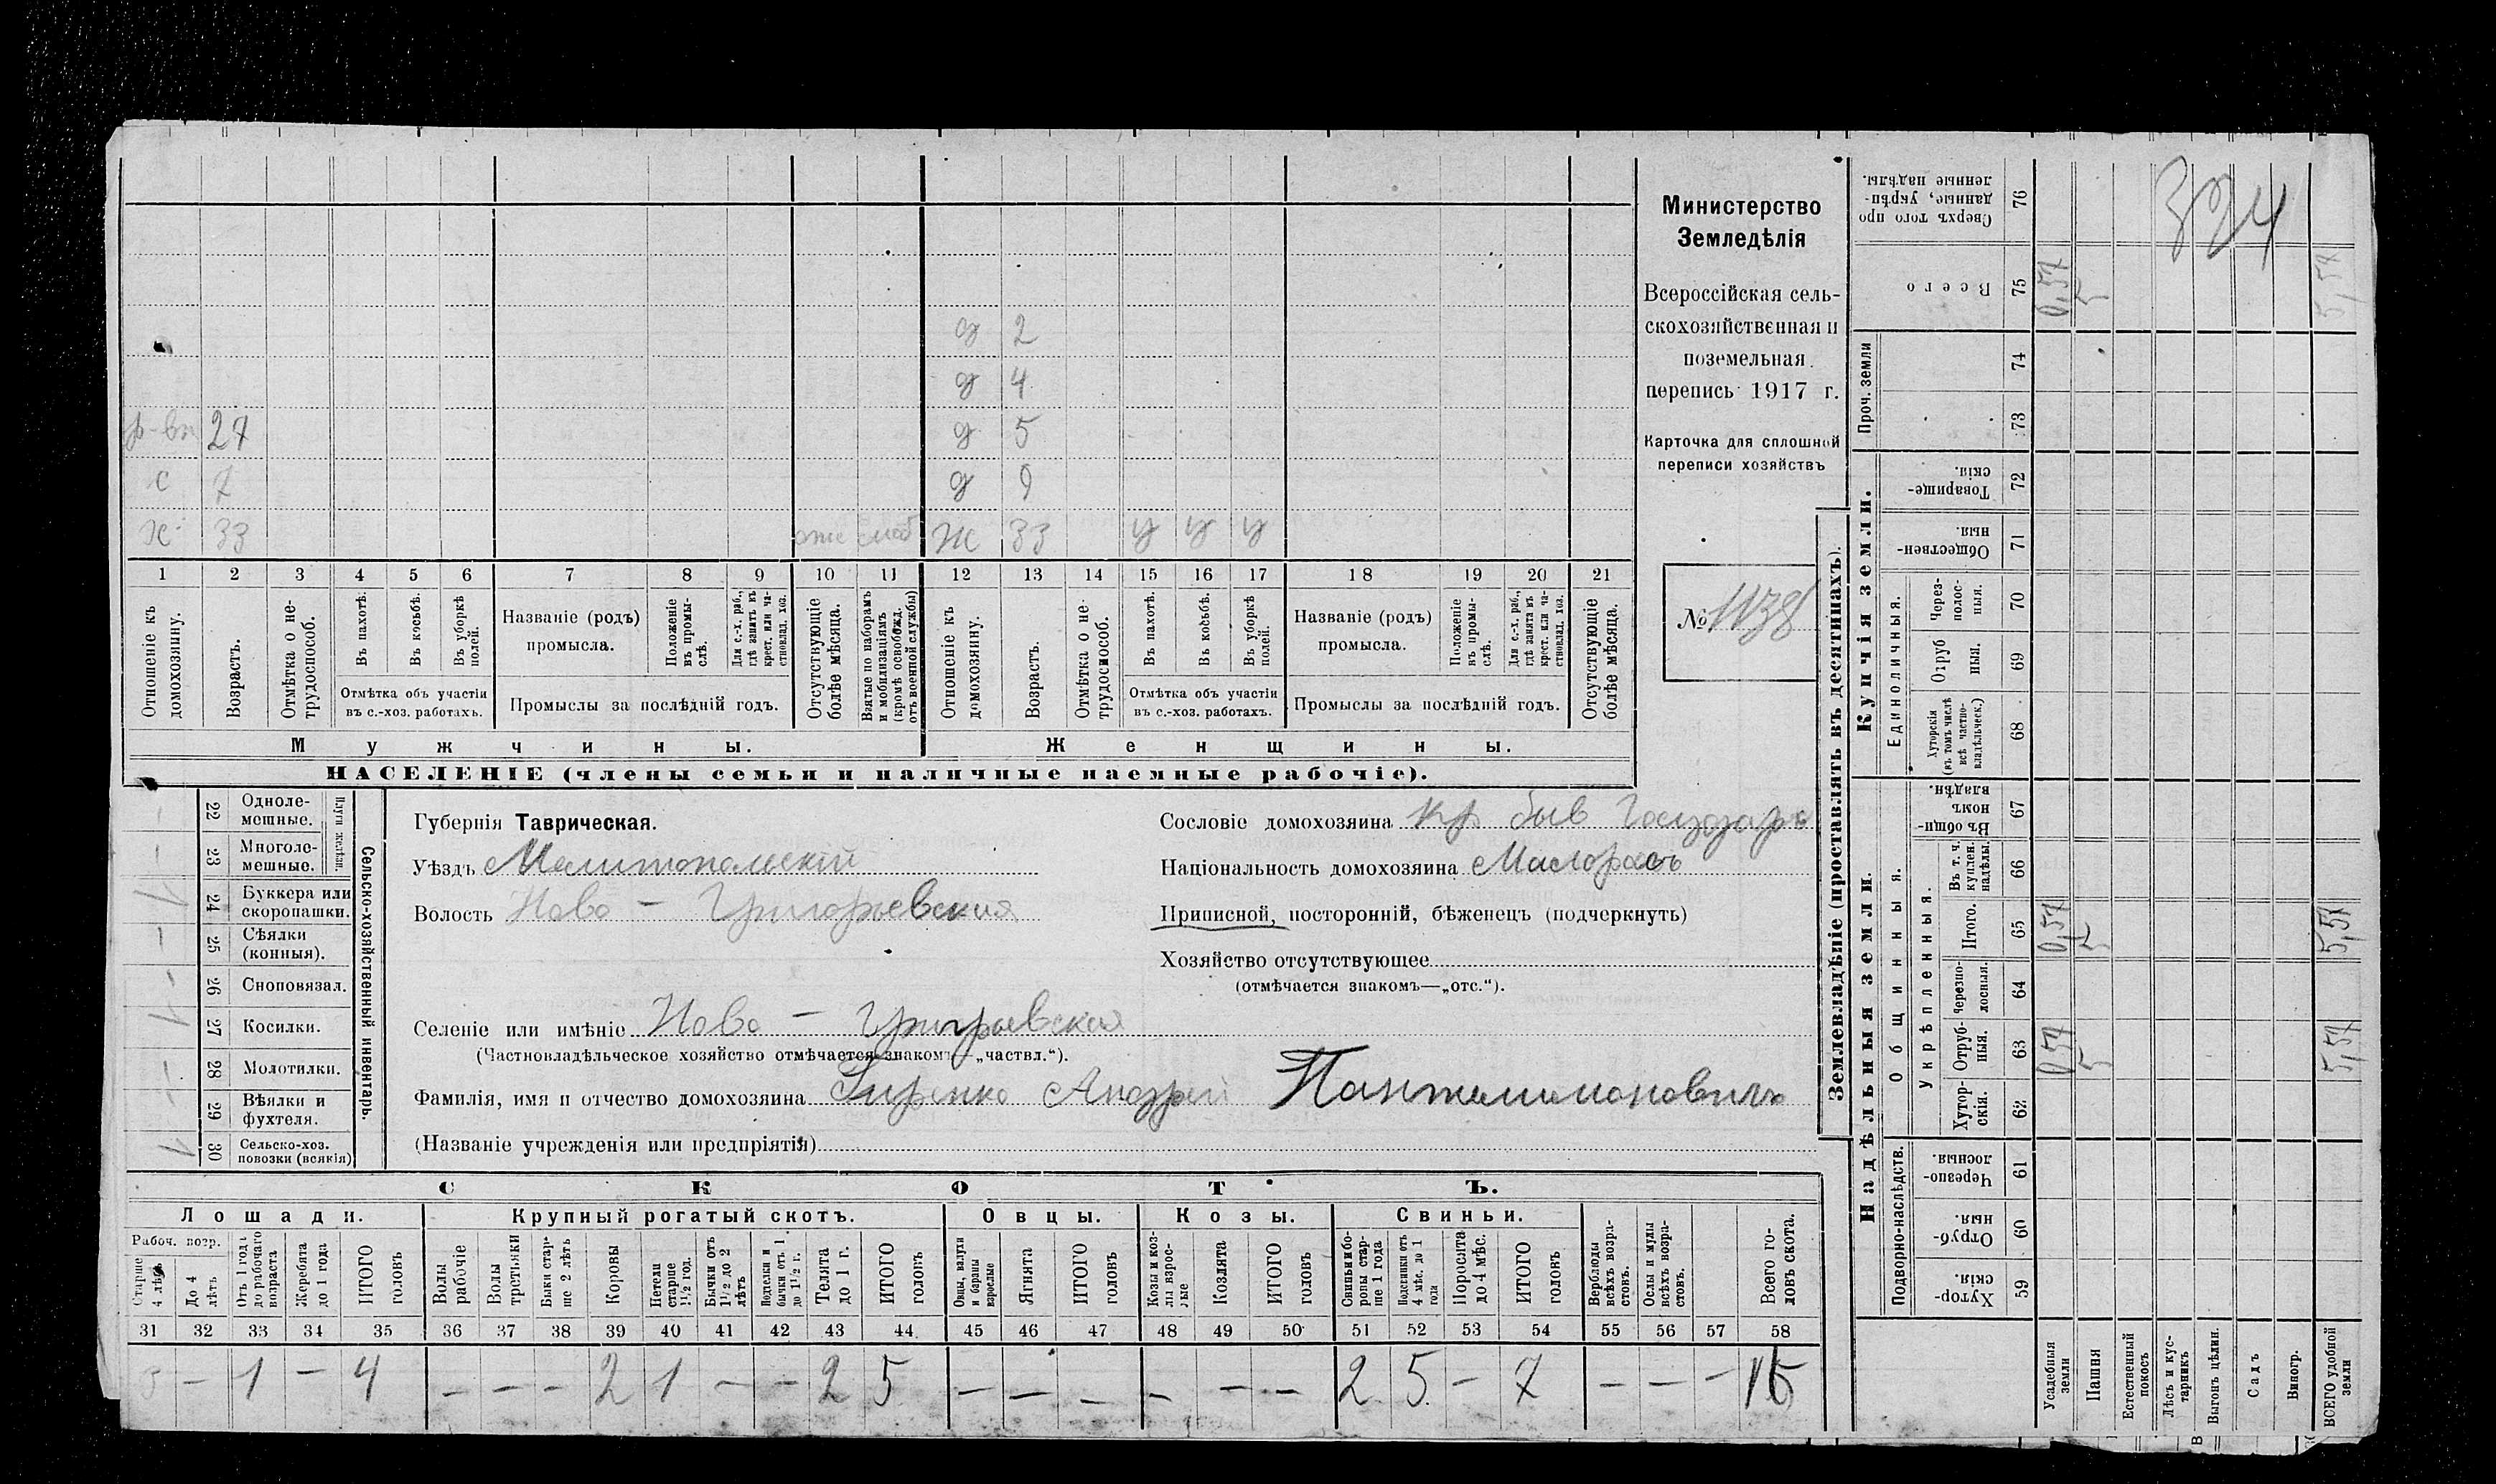 д 2
д 4
р-вн 27 д 5
с 7 д 9
х 33 Ж 33 у у у
1 2 3 4 5 6 7 8 9 10 11 12 13 14 15 16 17 18 19 20 21
Отношеніе къ домохозяину.
Возрастъ.
Отмѣтка о нетрудоспособ.
Въ пахотѣ.
Въ косьбѣ.
Въ уборкѣ полей.
Отмѣтка объ участіи
въ с.-хоз. работахъ.
Названіе (родъ)
промысла.
Положеніе въ промыслѣ.
Для с.-х. раб., гдѣ занятъ въ крест. или частновлад. хоз.
Промыслы за послѣдній годъ.
Отсутствующіе болѣе мѣсяца.
Взятые по наборамъ и мобилизаціямъ (кромѣ освобожд. отъ военной службы)
Отношеніе къ домохозяину.
Возрастъ.
Отмѣтка о нетрудоспособ.
Въ пахотѣ.
Въ косьбѣ.
Въ уборкѣ полей.
Отмѣтка объ участіи
въ с.-хоз. работахъ.
Названіе (родъ)
промысла.
Положеніе въ промыслѣ.
Для с.-х. раб., гдѣ занята въ крест. или частновлад. хоз.
Промыслы за послѣдній годъ.
Отсутствующіе болѣе мѣсяца.
Мужчины.
Женщины.
НАСЕЛЕНІЕ (члены семьи и наличные наемные рабочіе).
Министерство
Земледѣлія
Всероссійская сель-
скохозяйственная и
поземельная
перепись 1917 г.
Карточка для сплошной
переписи хозяйствъ
№ 1138
Сельско-хозяйственный инвентарь.
Плуги желѣзн.
22 Одноле-
мешные.
23 Многоле-
мешные.
24 Буккера или
скоропашки.
25 Сѣялки
(конныя).
26 Сноповязал.
27 Косилки.
28 Молотилки.
29 Вѣялки и
фухтеля.
30 Сельско-хоз.
повозки (всякія)
Губернія Таврическая.
Уѣздъ Мелитопольскій
Волость Ново - Григорьевская
Селеніе или имѣніе Ново - Григорьевская
(Частновладѣльческое хозяйство отмѣчается знакомъ—„частвл.“).
Фамилія, имя и отчество домохозяина Гиренко Андрей Пантелимоновичъ
(Названіе учрежденія или предпріятія)
Сословіе домохозяина Кр быв Государс
Національность домохозяина Малорасъ
Приписной, посторонній, бѣженецъ (подчеркнуть)
Хозяйство отсутствующее
(отмѣчается знакомъ—„отс.“).
СКОТЪ.
Лошади. Крупный рогатый скотъ. Овцы. Козы. Свиньи.
Рабоч. возр.
Старше 4 лѣтъ
До 4 лѣтъ
Отъ 1 года до рабочаго возраста
Жеребята до 1 года
ИТОГО головъ
Волы рабочіе
Волы третьяки
Быки старше 2 лѣтъ
Коровы
Нетели старше 1½ год.
Бычки отъ 1½ до 2 лѣтъ
Подтелки и бычки отъ 1 до 1½ г.
Телята до 1 г.
ИТОГО головъ
Овцы, валухи и бараны взрослые
Ягнята
ИТОГО головъ
Козы и козлы взрослые
Козлята
ИТОГО головъ
Свиньи и боровы старше 1 года
Подсвинки отъ 4 мѣс. до 1 года
Поросята до 4 мѣс.
ИТОГО головъ
Верблюды всѣхъ возрастовъ.
Ослы и мулы всѣхъ возрастовъ.
Всего головъ скота.
31 32 33 34 35 36 37 38 39 40 41 42 43 44 45 46 47 48 49 50 51 52 53 54 55 56 57 58
3 - 1 - 4 - - - 2 1 - - 2 5 - - - - - - 2 5 - 7 - - - 16
Землевладѣніе (проставлять въ десятинахъ).
Надѣльныя земли.
Купчія земли.
Проч. земли
Подворно-наслѣдств.
Общинныя.
Укрѣпленныя.
Единоличныя.
Хуторскія. 59
Отрубныя. 60
Черезполосныя. 61
Хуторскія. 62
Отрубныя. 63
Черезполосныя. 64
Итого. 65
Въ т. ч. куплен. надѣлы. 66
Въ общинномъ владѣн. 67
Хуторскія (въ томъ числѣ всѣ частновладѣльческ.) 68
Отрубныя. 69
Черезполосныя. 70
Общественныя 71
Товарищескія. 72
73
74
Всего 75
Сверхъ того проданные, укрѣпленные надѣлы. 76
Усадебныя земли 0,57 0,57 0,57
Пашня 5 5 5
Естественный покосъ
Лѣсъ и кустарникъ
Выгонъ цѣлин.
Садъ
Виногр.
ВСЕГО удобной земли 5,57 5,57 5,57
324